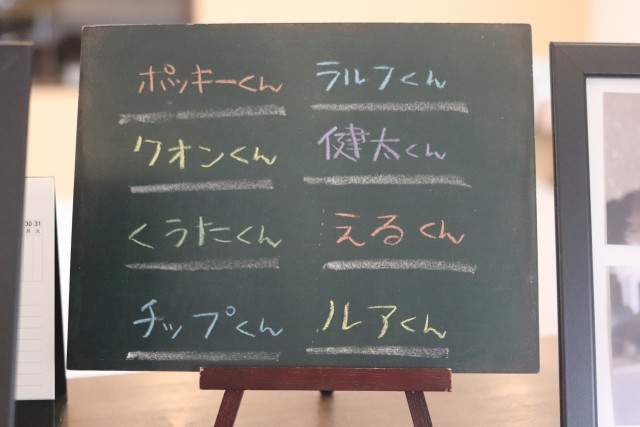 ポッキーくん
ラルフくん
クオンくん
健太くん
くうたくん
えるくん
チップくん
ルアくん
30 31
月 火